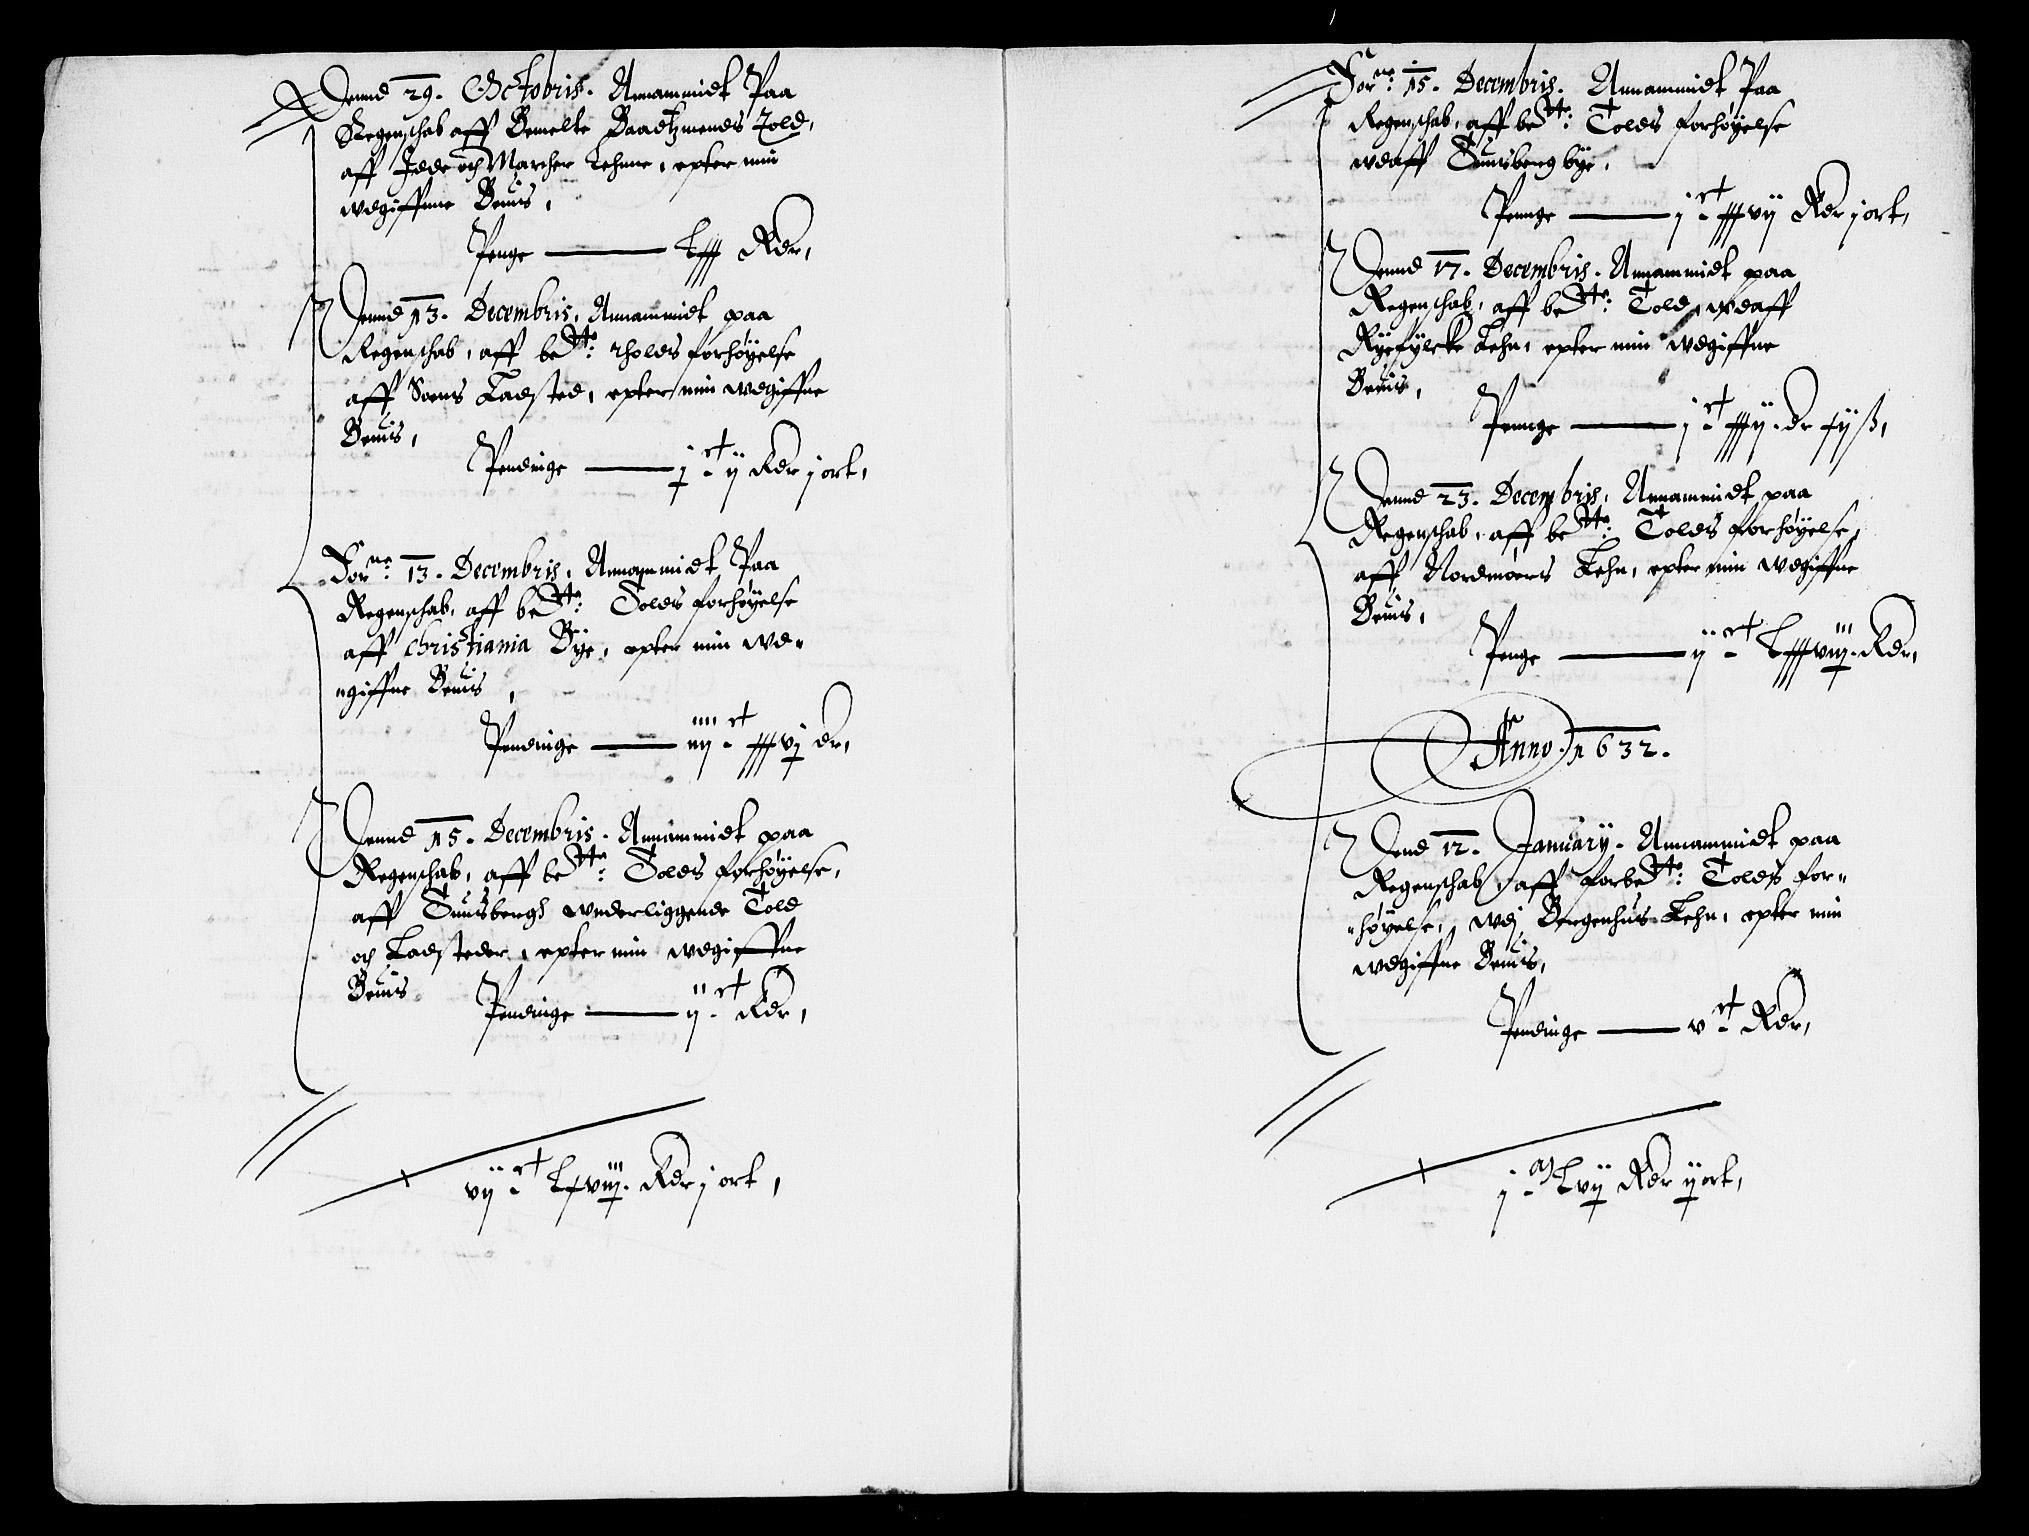 Dennd 29. Octobris. Annammidt Paa
Regenschab aff Bemelte Baadtzmends Told,
aff Idde och Marcher Lehnne, epter min
wdgiffnne Beuis,
Penge — Lxx Rdr,
Dennd 13. Decembris, Annammidt paa
Regenschab, aff be.te: tholds forhøyelse
aff Soens Ladsted, epter min wdgiffne
Beuis,
Pendinge — j c ij Rdr j ort,
For.ne: 13. Decembris, Annammidt Paa
Regenschab, aff be.te: Tolds forhøyelse
aff Christiania Bye, epter min wd-
-giffne Beuis,
Pendinge — iiij c xxxvj dr,
Dennd 15. Decembris. Annammidt paa
Regenschab, aff be.te: Tolds forhøyelse,
aff Tunsbergs wnderliggende Told
och Ladsteder, epter min wdgiffne
Beuis
Pendinge — ij c Rdr,
vij c Lxviij. Rdr j ort,
For.ne: 15. Decembris. Annammidt Paa
Regenschab, aff be.te: Tolds forhøyelse
wdaff Tunsberg bye,
Penge — j c xxxvij Rdr j ort,
Dennd 17. Decembris. Annammidt paa
Regenschab, aff be.te: Told, wdaff
Ryefylcke Lehn, epter min wdgiffne
Beuis,
Penge — j c xxxij. dr xij ß,
Dennd 23. Decembris, Annammidt paa
Regenschab, aff be.te: Tolds forhøyelse,
aff Nordmøers Lehn, epter min wdgiffne
Beuis,
Penge — ij c Lxxxviij. Rdr,
Anno. 1632.
Dend 12. January. Annammidt paa
Regenschab, aff forbe.te: Tolds for-
-høyelse, wdj Bergenhus Lehn, epter min
wdgiffne Beuis,
Pendinge — v c Rdr,
j m Lvij Rdr ij ort,